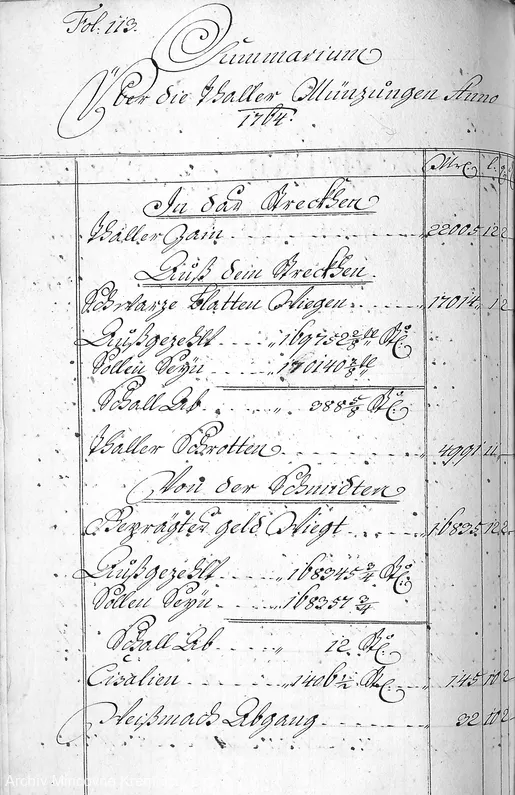 Fol: 113.
Summarium
Über die Thaller Münzungen Anno
1764.
Mrk l. q
In das Streckhen
Thaller Zain 22005 12 2
Auß dem Streckhen
Schwarze Blatten Wiegen 17014 12
Außgezehlt 169752 2/8 St.
Sollen Seyn 170140 7/8
Schall Ab 388 5/8 St.
Thaller Schrotten 4991 11
Von der Schmidten
Geprägtes geld Wiegt 16835 12 2
Außgezehlt 168345 3/4 St.
Sollen Seyn 168357 3/4
Schall Ab 12 St.
Cisalien 1406 1/2 St. 145 10 2
Weißmach Abgang 32 10 2
Archiv Mincovne Kremnica